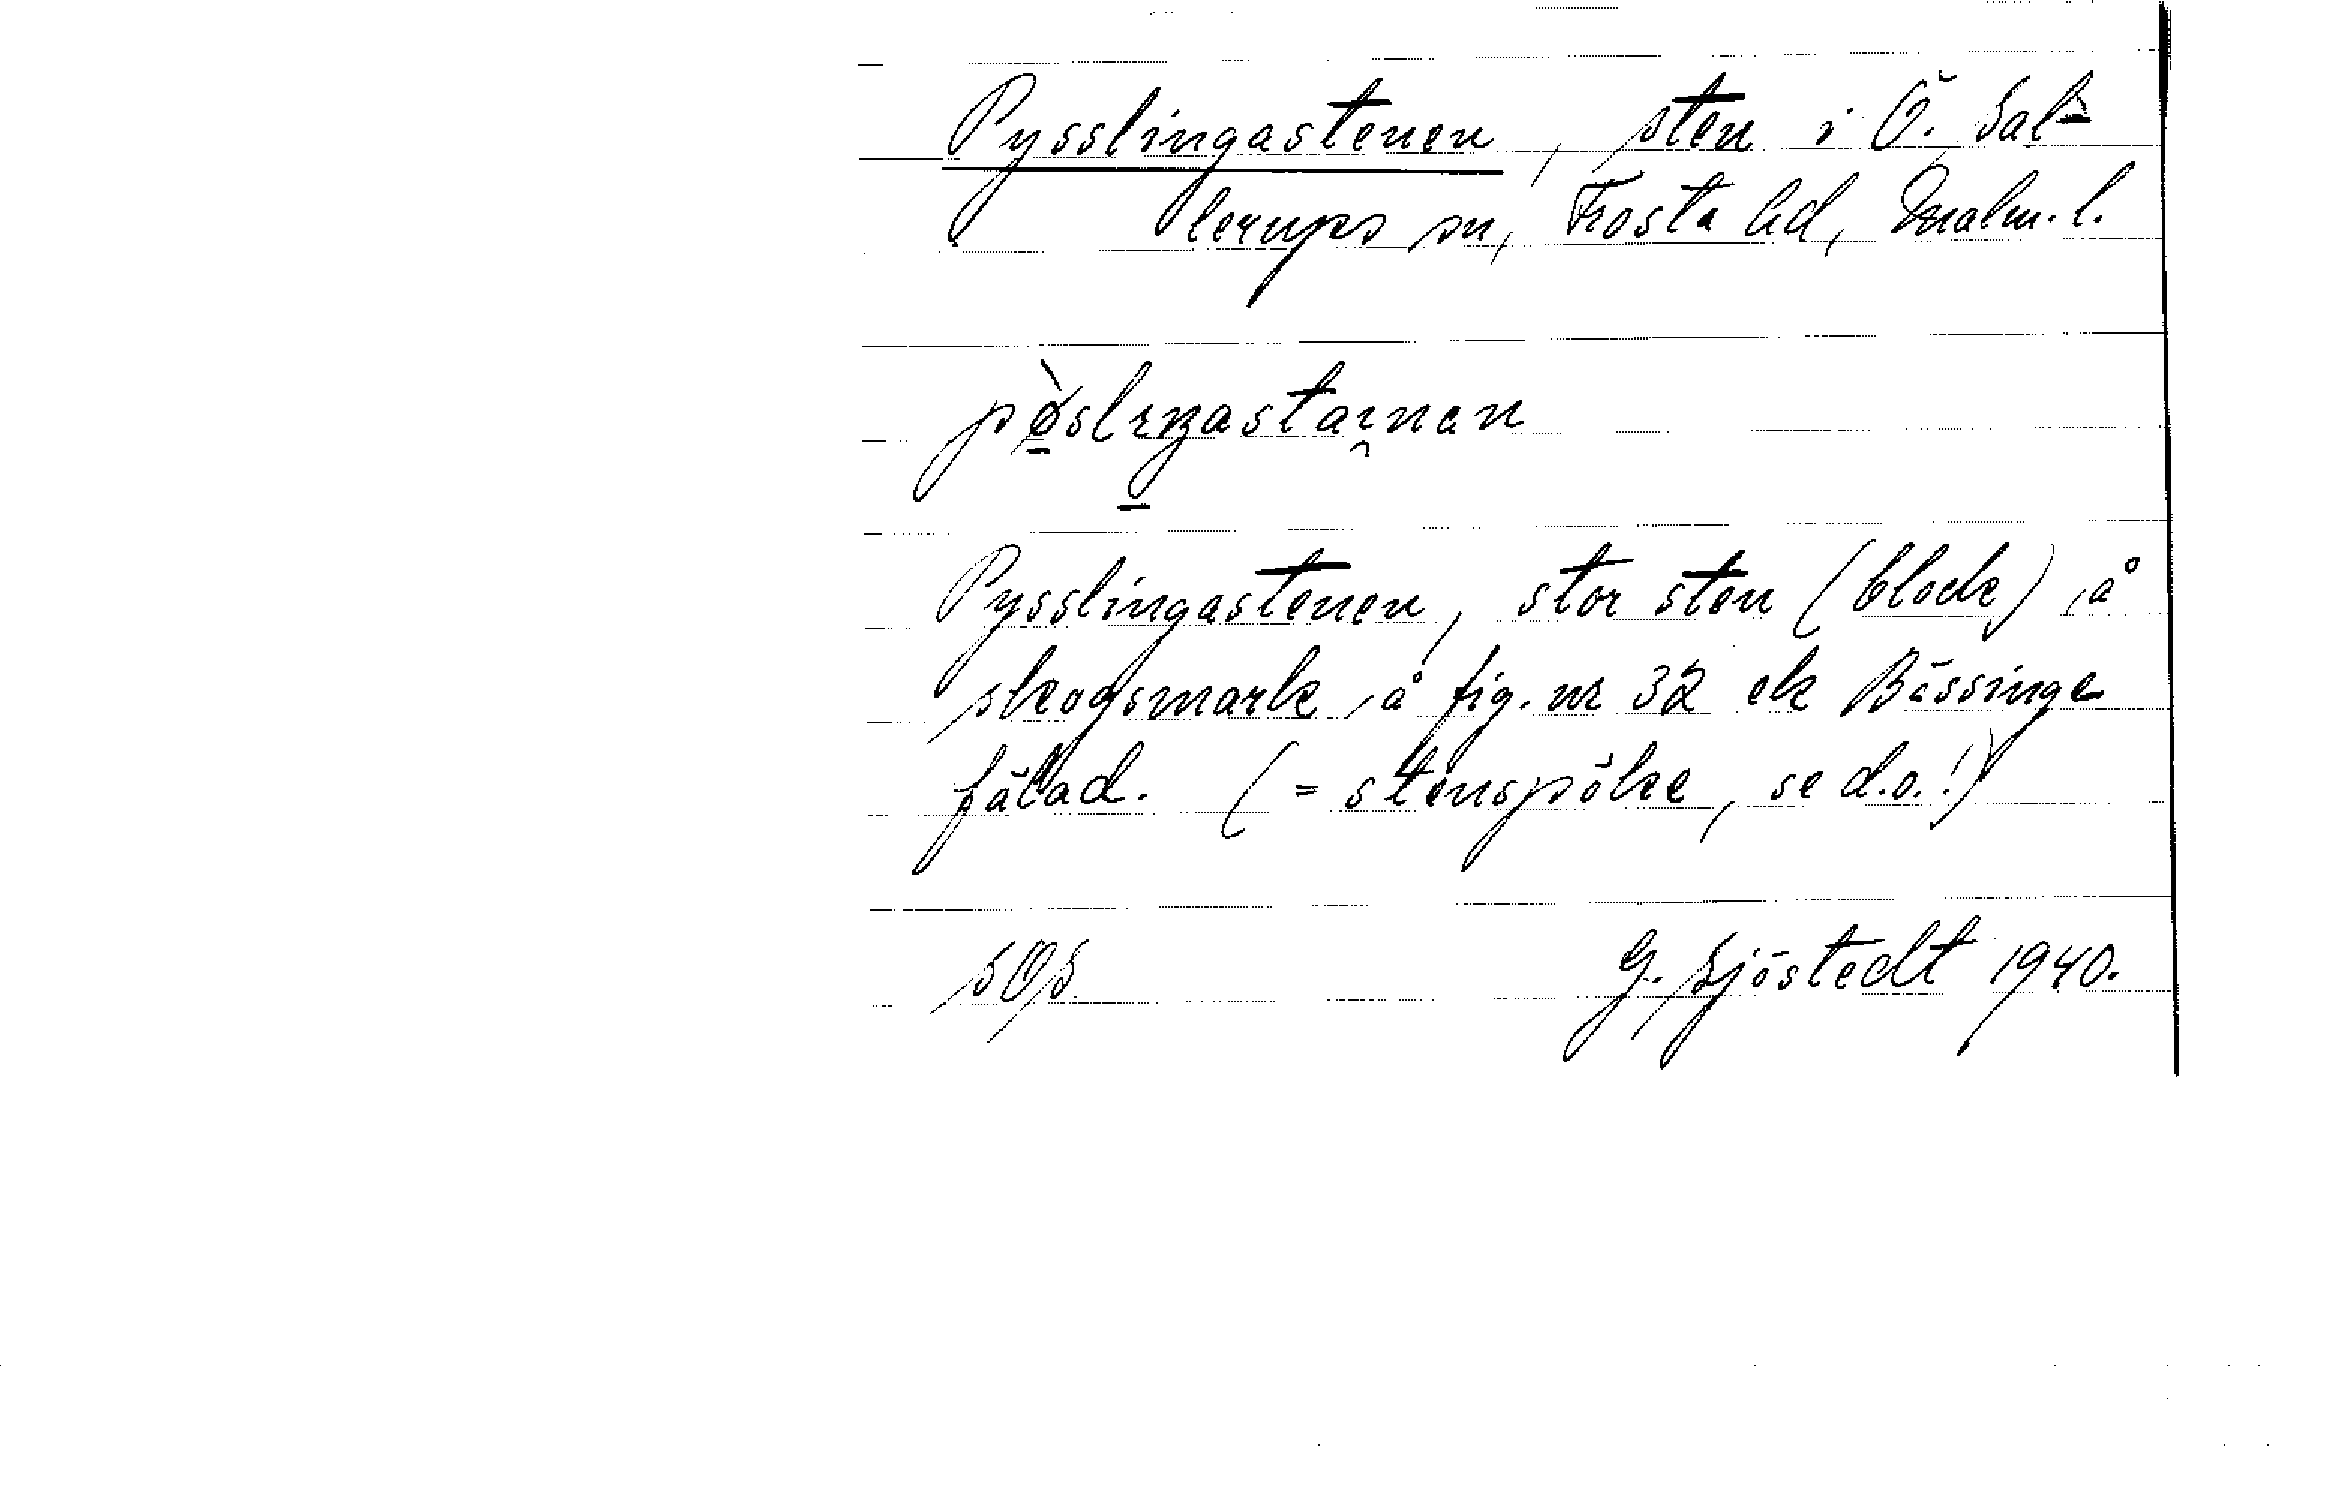 Pysslingastenen, sten i Ö. Sal-
lerups sn, Frosta hd, Malm. l.
pø̀slıŋastai̯nan
Pysslingastenen, stor sten (block), å
skogsmark, å fig. nr 32 ek Bässinge
fälad. (= stenspöke, se d.o.!)
SOS. G. Sjöstedt 1940.